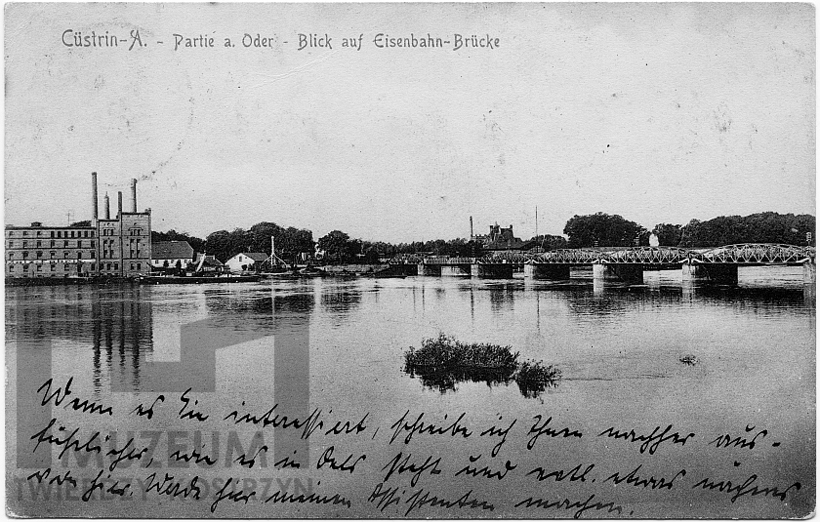 Cüstrin-A. - Partie a. Oder - Blick auf Eisenbahn-Brücke
Wenn es Sie interessiert, schreibe ich Ihnen nachher aus-
führlicher, wie es in Oels steht und evtl. etwas nächens
von hier. Werde hier meinen Assistenten machen.
MUZEUM
TWIERDZY KOSTRZYN